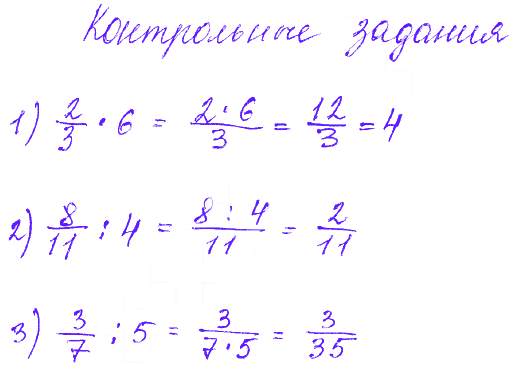 Контрольные задания
1) 2/3 · 6 = 2 · 6/3 = 12/3 = 4
2) 8/11 : 4 = 8 : 4/11 = 2/11
3) 3/7 : 5 = 3/7 · 5 = 3/35